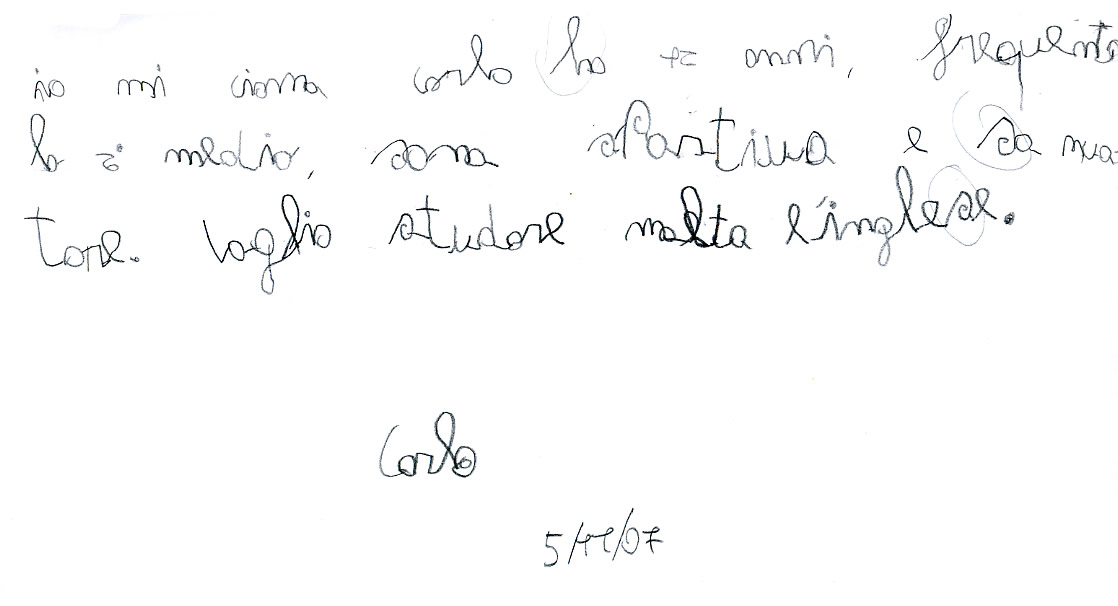 io mi ciamo carlo ho 12 anni, frequento
la 2ª media, sono sPortivo e so nuo-
tare. Voglio studare molto l'inglese.
Carlo
5/11/07